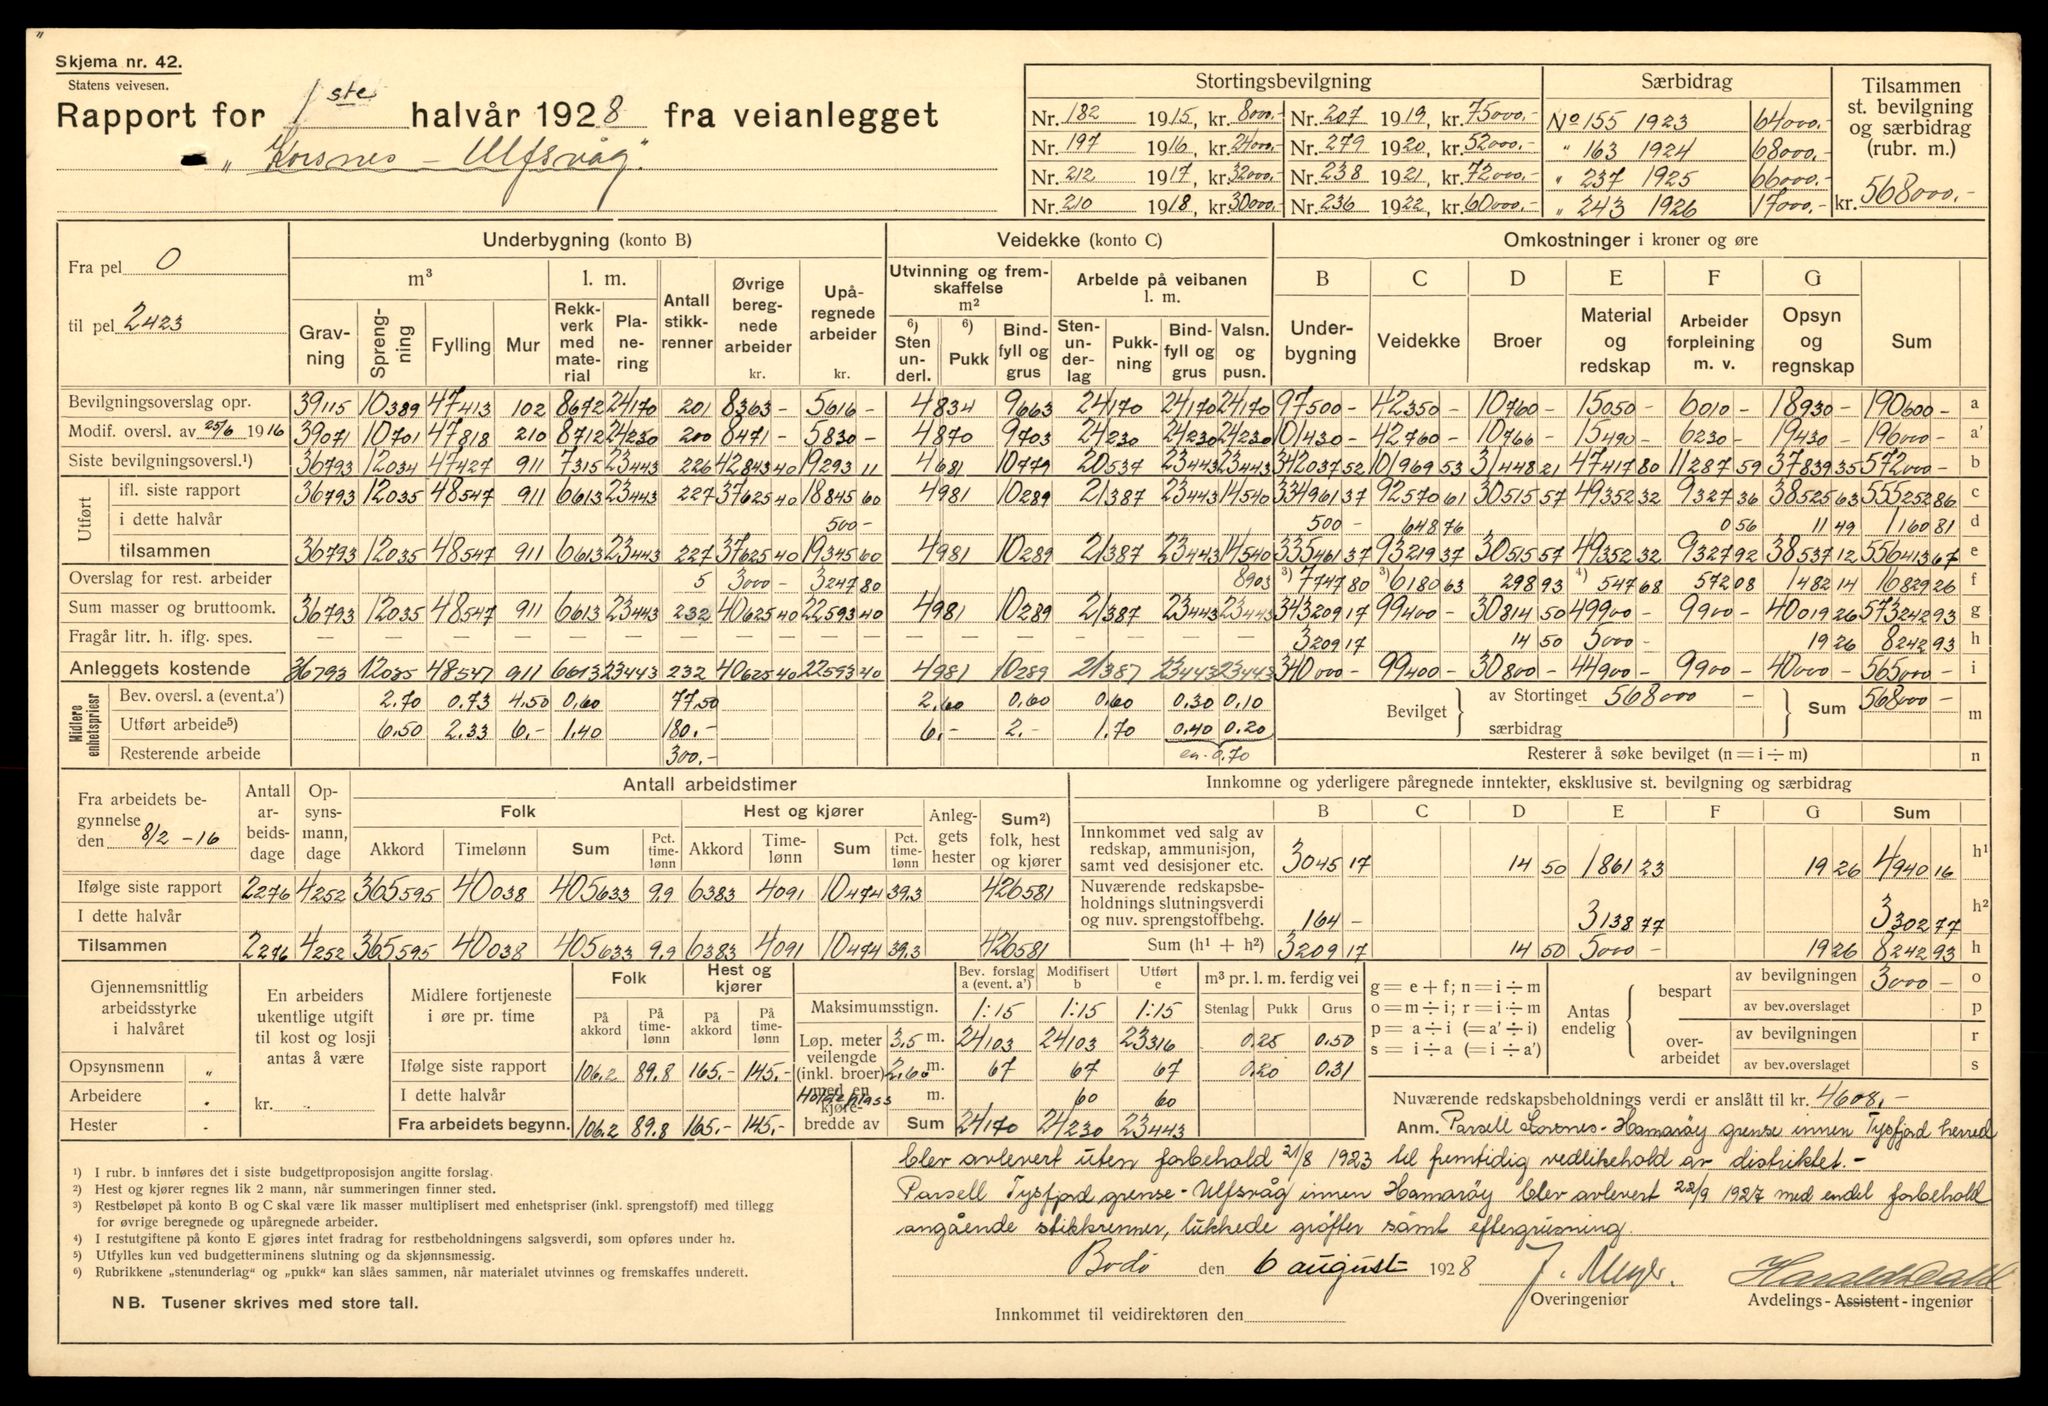 Skjema nr. 42.
Statens veivesen.
Rapport for 1ste halvår 1928 fra veianlegget
„Korsnes – Ulfsvåg".
Stortingsbevilgning | Særbidrag | Tilsammen st. bevilgning og særbidrag (rubr. m.)
Nr. 182 1915, kr. 8000,- Nr. 207 1919, kr. 75000,- No 155 1923 64000,-
Nr. 197 1916, kr. 24000,- Nr. 279 1920, kr. 52000,- " 163 1924 68000,-
Nr. 212 1917, kr. 32000,- Nr. 238 1921, kr. 72000,- " 237 1925 66000,-
Nr. 210 1918, kr. 30000,- Nr. 236 1922, kr. 60000,- " 243 1926 17000,- kr. 568000,-
Fra pel 0
til pel 2423
Underbygning (konto B) | Veidekke (konto C) | Omkostninger i kroner og øre
m³ | l. m. | Antall stikkrenner | Øvrige beregnede arbeider kr. | Upåregnede arbeider kr. | Utvinning og fremskaffelse m² | Arbeide på veibanen l. m. | B | C | D | E | F | G
Gravning | Sprengning | Fylling | Mur | Rekkverk med material | Planering | 6) Sten underl. | 6) Pukk | Bindfyll og grus | Stenunderlag | Pukkning | Bindfyll og grus | Valsn. og pusn. | Underbygning | Veidekke | Broer | Material og redskap | Arbeider forpleining m. v. | Opsyn og regnskap | Sum
Bevilgningsoverslag opr. 39115 10389 47413 102 8672 24170 201 8363 - 5616 - 4834 9663 24170 24170 24170 97500 - 42350 - 10760 - 15050 - 6010 - 18930 - 190600 - a
Modif. oversl. av 25/6 1916 39071 10701 47818 210 8712 24230 200 8471 - 5830 - 4870 9703 24230 24230 24230 101430 - 42760 - 10766 - 15490 - 6230 - 19430 - 196000 - a'
Siste bevilgningsoversl.¹) 36793 12034 47427 911 7315 23443 226 42843 40 19293 11 4681 10779 20537 23443 23443 342037 52 101969 53 31448 21 47417 80 11287 59 37839 35 572000 - b
Utført
ifl. siste rapport 36793 12035 48547 911 6613 23443 227 37625 40 18845 60 4981 10289 21387 23443 14540 334961 37 92570 61 30515 57 49352 32 9327 36 38525 63 555252 86 c
i dette halvår 500 - 500 - 648 76 0 56 11 49 1160 81 d
tilsammen 36793 12035 48547 911 6613 23443 227 37625 40 19345 60 4981 10289 21387 23443 14540 335461 37 93219 37 30515 57 49352 32 9327 92 38537 12 556413 67 e
Overslag for rest. arbeider 5 3000 - 3247 80 8903 ³) 7747 80 ³) 6180 63 298 93 ⁴) 547 68 572 08 1482 14 16829 26 f
Sum masser og bruttoomk. 36793 12035 48547 911 6613 23443 232 40625 40 22593 40 4981 10289 21387 23443 23443 343209 17 99400 - 30814 50 49900 - 9900 - 40019 26 573242 93 g
Fragår litr. h. iflg. spes. — — — — — — — — — — — — — — 3209 17 14 50 5000 - 19 26 8242 93 h
Anleggets kostende 36793 12035 48547 911 6613 23443 232 40625 40 22593 40 4981 10289 21387 23443 23443 340000 - 99400 - 30800 - 44900 - 9900 - 40000 - 565000 - i
Midlere enhetspriser
Bev. oversl. a (event. a') 2.70 0.73 4.50 0.60 77.50 2.60 0.60 0.60 0.30 0.10 Bevilget av Stortinget 568000 - Sum 568000 - m
Utført arbeide⁵) 6.50 2.33 6.- 1.40 180.- 6.- 2.- 1.70 0.40 0.20 særbidrag
Resterende arbeide 300.- en. 0.70 Resterer å søke bevilget (n = i ÷ m) n
Fra arbeidets begynnelse den 8/2 -16
Antall arbeidsdage | Opsynsmann, dage | Antall arbeidstimer
Folk | Hest og kjører | Anleggets hester | Sum²) folk, hest og kjører
Akkord | Timelønn | Sum | Pct. timelønn | Akkord | Timelønn | Sum | Pct. timelønn
Ifølge siste rapport 2276 4252 365595 40038 405633 9.9 6383 4091 10474 39.3 426581
I dette halvår
Tilsammen 2276 4252 365595 40038 405633 9.9 6383 4091 10474 39.3 426581
Innkomne og yderligere påregnede inntekter, eksklusive st. bevilgning og særbidrag
B | C | D | E | F | G | Sum
Innkommet ved salg av redskap, ammunisjon, samt ved desisjoner etc. 3045 17 14 50 1861 23 19 26 4940 16 h¹
Nuværende redskapsbeholdnings slutningsverdi og nuv. sprengstoffbehg. 164 - 3138 77 3302 77 h²
Sum (h¹ + h²) 3209 17 14 50 5000 - 19 26 8242 93 h
Gjennemsnittlig arbeidsstyrke i halvåret
Opsynsmenn "
Arbeidere .
Hester .
En arbeiders ukentlige utgift til kost og losji antas å være
kr.
Midlere fortjeneste i øre pr. time | Folk | Hest og kjører
På akkord | På timelønn | På akkord | På timelønn
Ifølge siste rapport 106.2 89.8 165.- 145.-
I dette halvår
Fra arbeidets begynn. 106.2 89.8 165.- 145.-
Bev. forslag a (event. a') | Modifisert b | Utført e | m³ pr. l. m. ferdig vei
Maksimumsstign. 1:15 1:15 1:15 Stenlag | Pukk | Grus
Løp. meter veilengde (inkl. broer) med en kjørebredde av
3.5 m. 24103 24103 23316 0.25 0.50
2.60 m. 67 67 67 0.20 0.31
m. 60 60
Sum 24170 24230 23443
g = e + f; n = i ÷ m
o = m ÷ i; r = i ÷ m
p = a ÷ i (= a' ÷ i)
s = i ÷ a (= i ÷ a')
Antas endelig
bespart av bevilgningen 3000 - o
av bev.overslaget p
overarbeidet av bevilgningen r
av bev.overslaget s
Nuværende redskapsbeholdnings verdi er anslått til kr. 4608,-
Anm. Parsell Korsnes - Hamarøy grense innen Tysfjord herred
blev avlevert uten forbehold 21/8 1923 til fremtidig vedlikehold av distriktet. -
Parsell Tysfjord grense - Ulfsvåg innen Hamarøy blev avlevert 22/9 1927 med endel forbehold
angående stikkrenner, lukkede grøfter samt eftergrusning.
Bodø den 6 august 1928 J. Meyer. Harald Dahl
Overingeniør Avdelings- Assistent - ingeniør
Innkommet til veidirektøren den
¹) I rubr. b innføres det i siste budgettproposisjon angitte forslag.
²) Hest og kjører regnes lik 2 mann, når summeringen finner sted.
³) Restbeløpet på konto B og C skal være lik masser multiplisert med enhetspriser (inkl. sprengstoff) med tillegg
for øvrige beregnede og upåregnede arbeider.
⁴) I restutgiftene på konto E gjøres intet fradrag for restbeholdningens salgsverdi, som opføres under h2.
⁵) Utfylles kun ved budgetterminens slutning og da skjønnsmessig.
⁶) Rubrikkene „stenunderlag" og „pukk" kan slåes sammen, når materialet utvinnes og fremskaffes underett.
NB. Tusener skrives med store tall.